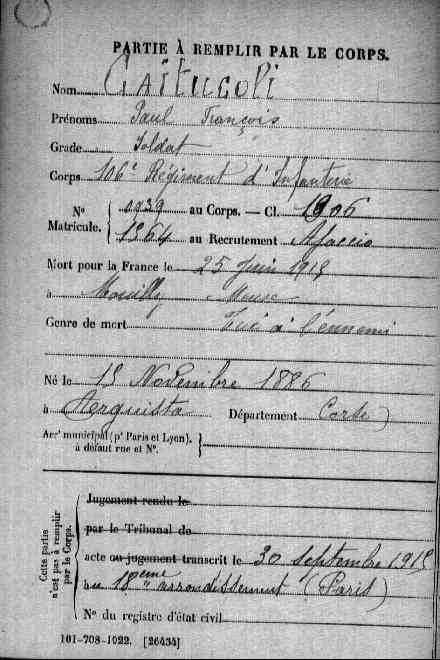 PARTIE À REMPLIR PAR LE CORPS.
Nom Gaffucopi
Prénoms Paul François
Grade Soldat
Corps 106e Régiment d'Infanterie
N° Matricule. 0939 au Corps. — Cl. 1906
1364 au Recrutement Ajaccio
Mort pour la France le 25 Juin 1915
à Mouilly Meuse
Genre de mort Tué à l'ennemi
Né le 15 Novembre 1886
à Département Corse
Arr' municipal (p' Paris et Lyon),
à défaut rue et N°.
Cette partie n'est pas à remplir par le Corps.
Jugement rendu le
par le Tribunal de
acte ou jugement transcrit le 30 septembre 1915
au 18ème arrondissement (Paris)
N° du registre d'état civil
101-708-1922. [26434]